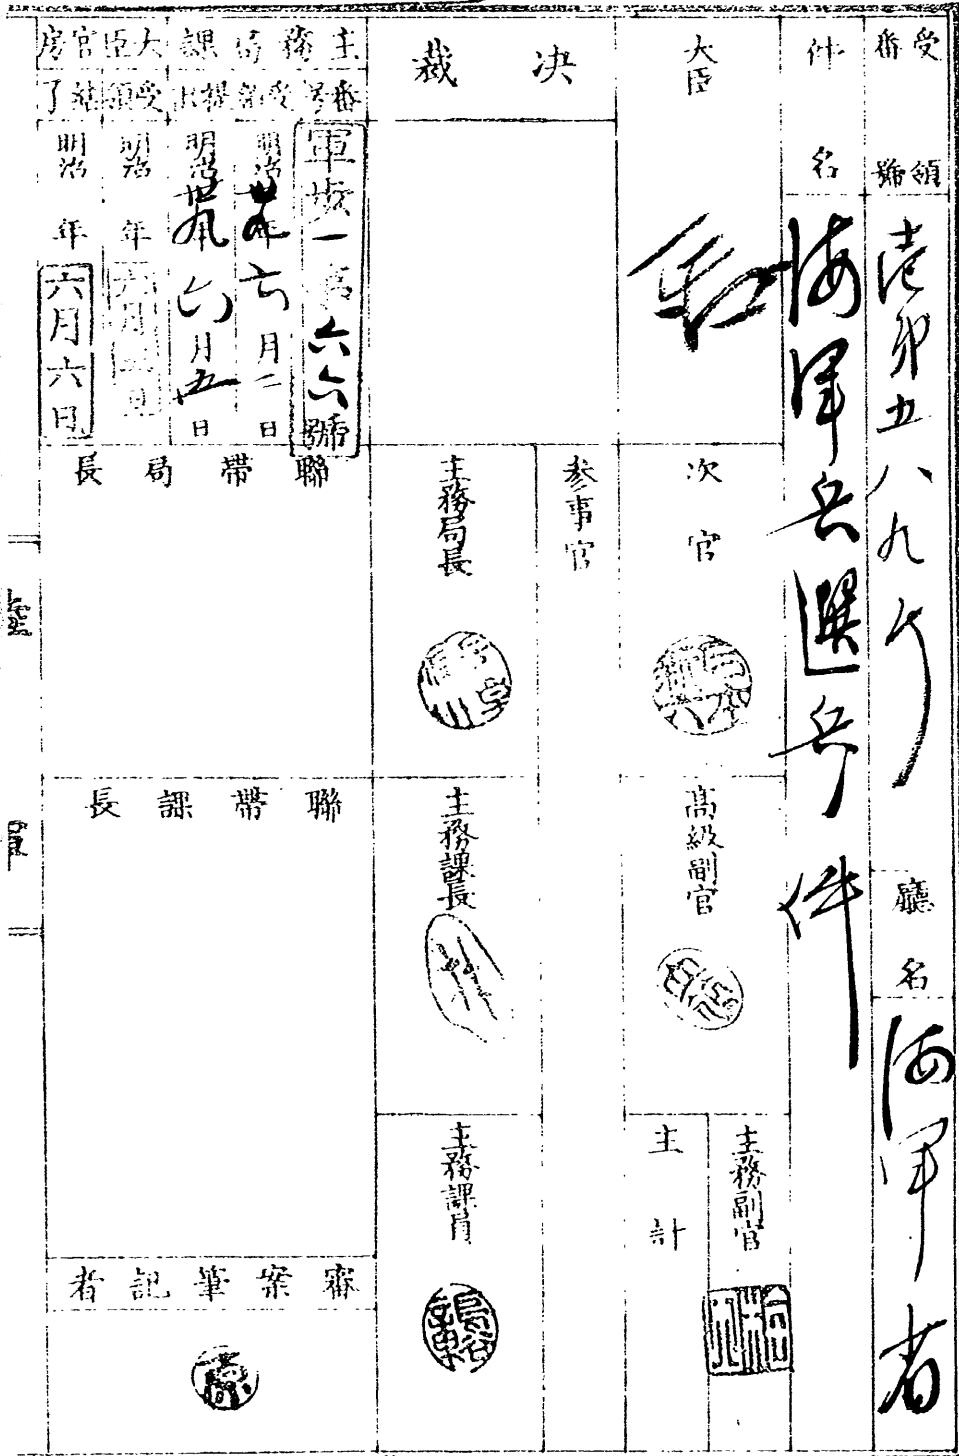 受領番號
壱第五八九号
廳名
海軍省
件名
海軍兵選兵ノ件
大臣
次官
高級副官
主務副官
主計
決裁
参事官
主務局長
主務課長
主務課員
主務局課
番号
軍歩一第六六號
受領
明治卅五年六月二日
提出
明治卅五年六月五日
大臣官房
受領
明治 年
結了
明治 年
六月六日
聯帯局長
聯帯課長
審案筆記者